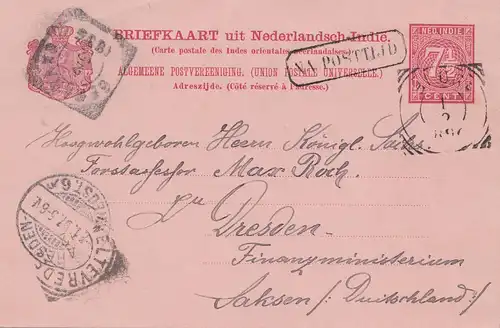 BRIEFKAART uit Nederlandsch-Indie.
(Carte postale des Indes orientales néerlandaises.)
ALGEMEENE POSTVEREENIGING. (UNION POSTALE UNIVERSELLE.)
Adreszijde. (Côté réservé à l'adresse.)
NA POSTTIJD
NED. INDIE
7½
CENT
Hoogwohlgeboren Herrn Königl. Sächs.
Forstassessor Max Roch.
zu Dresden-
Finanzministerium
Saksen (Duitschland)
WELTEVREDEN
DRESDEN-